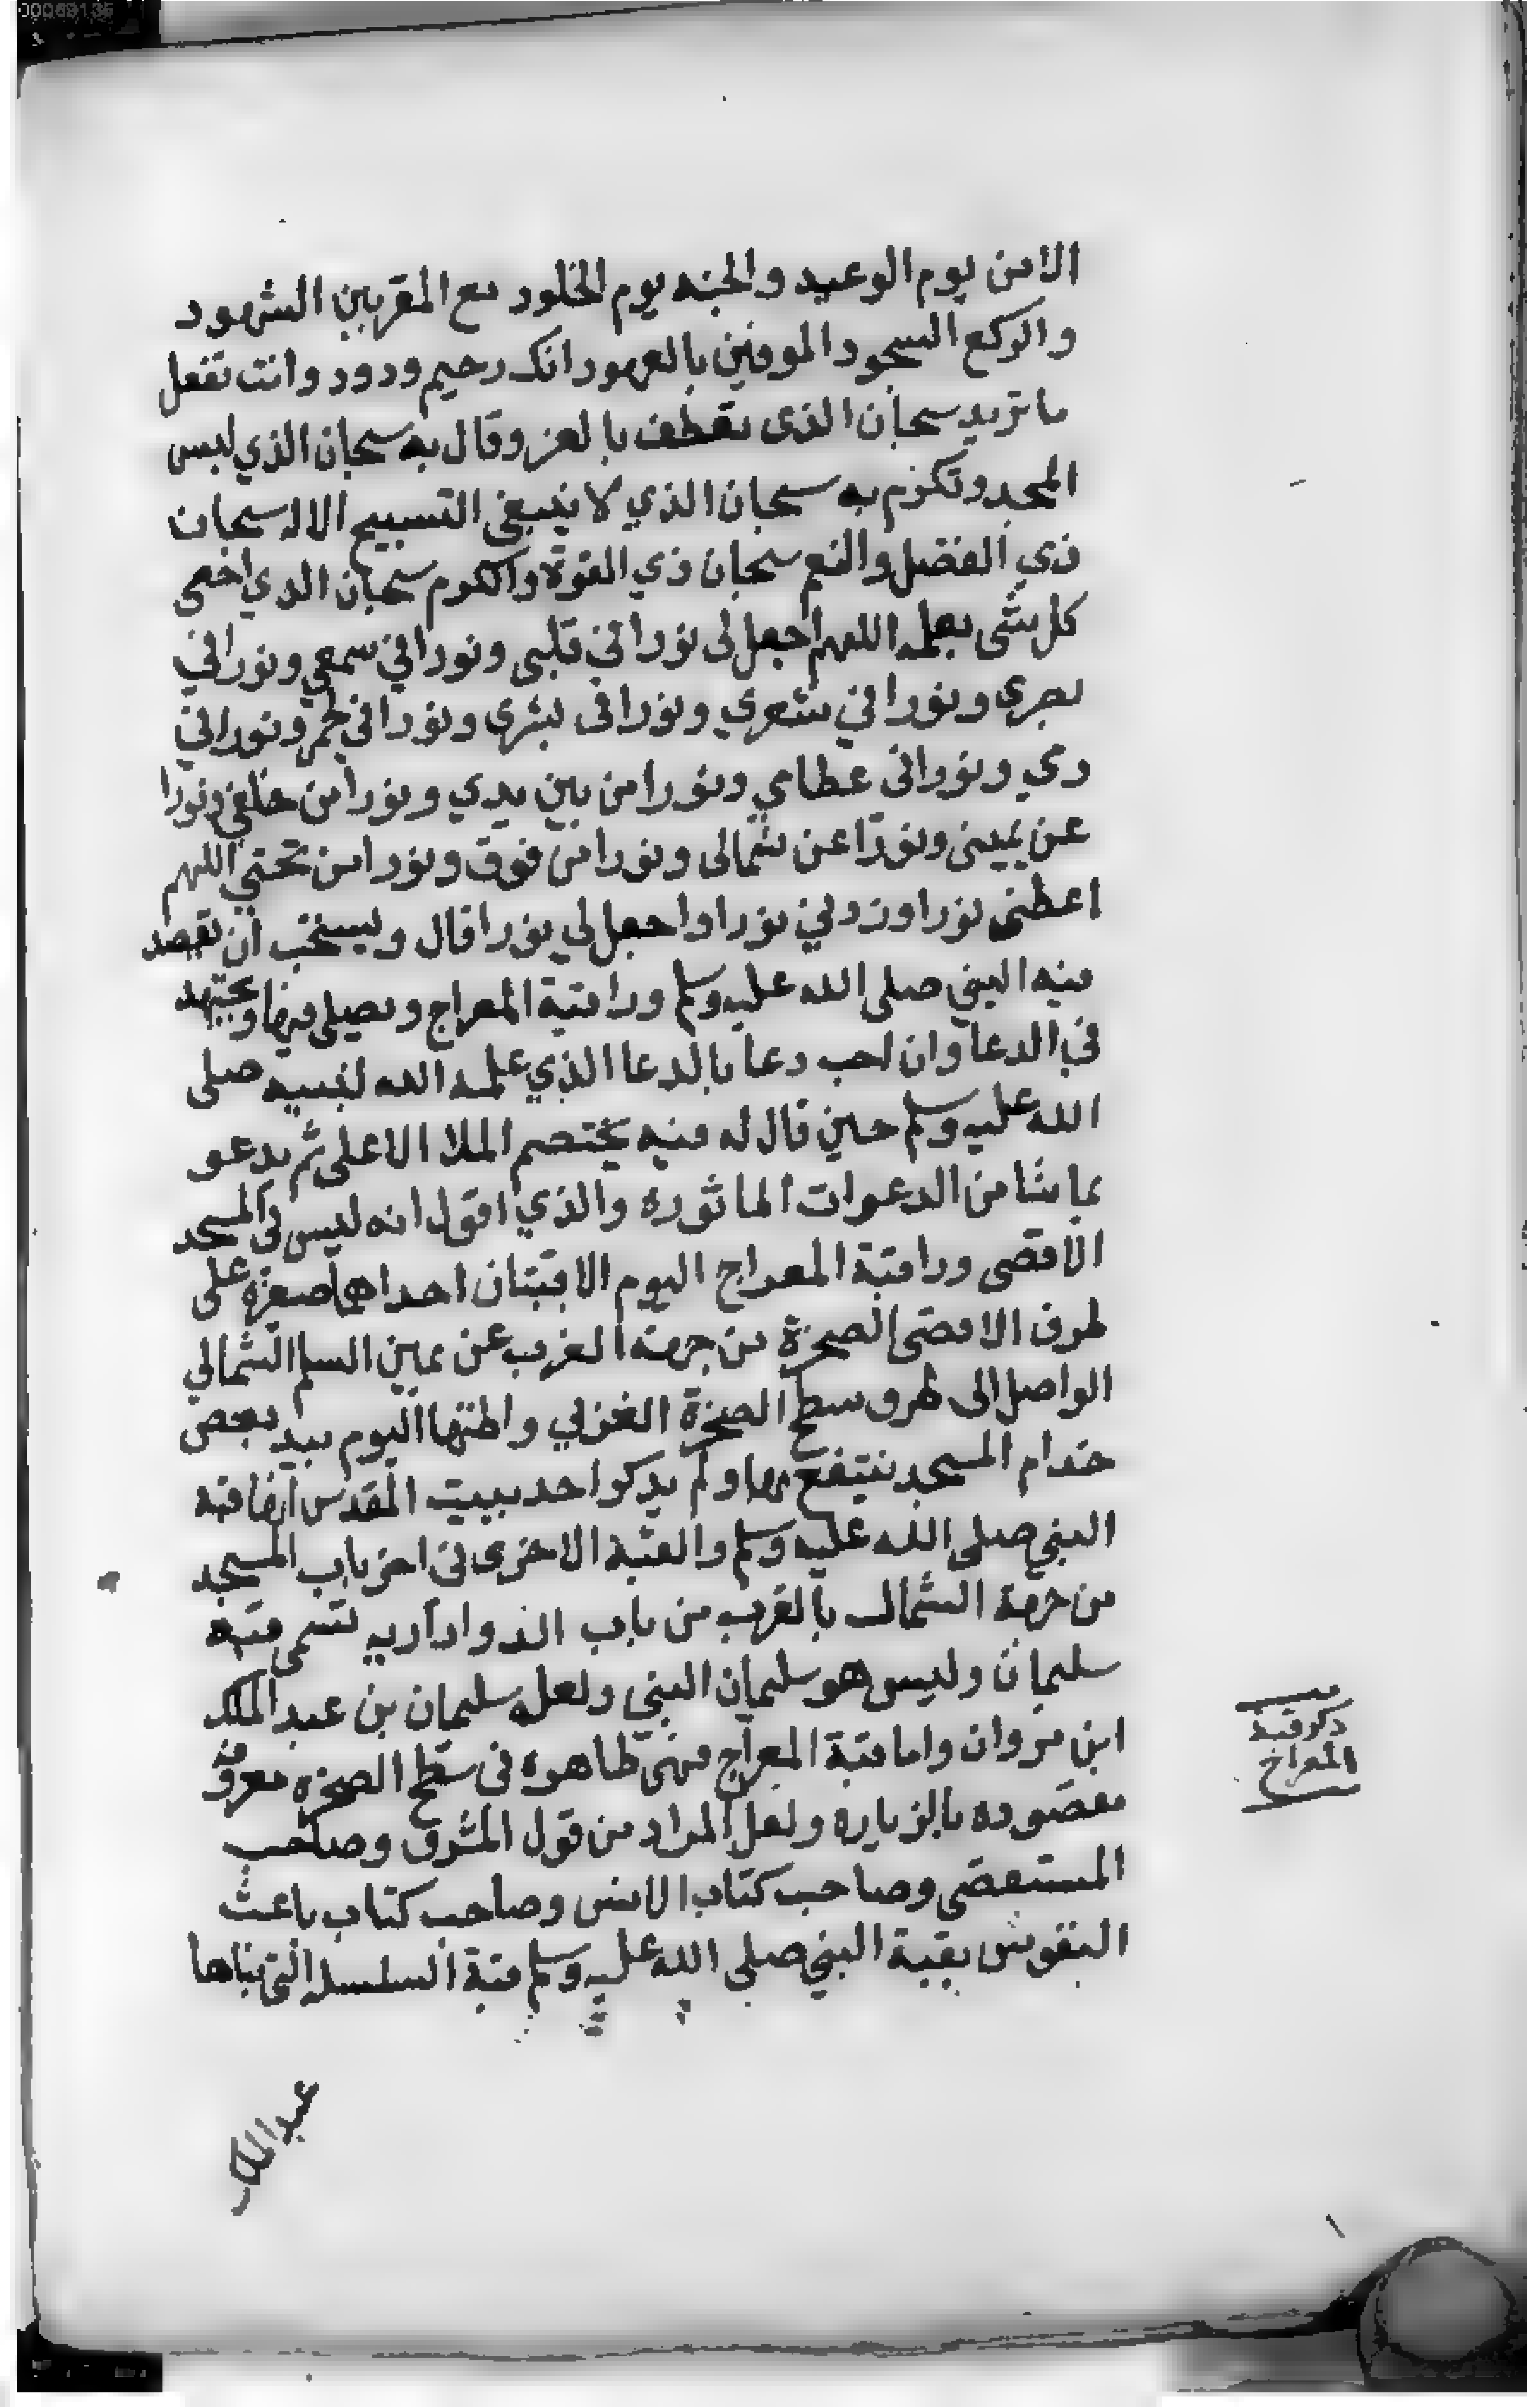 00089135
الامن يوم الوعيد والجنه يوم الخلود مع المقربين الشهود
والركع السجود الموفين بالعهود انك رحيم ودود وانت تفعل
ما تريد سبحان الذي تعطف بالعز وقال به سبحان الذي لبس
المجد وتكرم به سبحان الذي لا ينبغي التسبيح الا له سبحان
ذي الفضل والنعم سبحان ذي القوة والكرم سبحان الذي احصى
كل شي بعلمه اللهم اجعل لي نورا في قلبي ونورا في سمعي ونورا في
بصري ونورا في شعري ونورا في بشري ونورا في لحمي ونورا في
دمي ونورا في عظامي ونورا من بين يدي ونورا من خلفي ونورا
عن يميني ونورا عن شمالي ونورا من فوق ونورا من تحتي اللهم
اعطني نورا وزدني نورا واجعل لي نورا قال ويستحب ان تقصد
قبه النبي صلى الله عليه وسلم ورا قبة المعراج ويصلي فيها ويجتهد
في الدعا وان احب دعا بالدعا الذي علمه الله لنبيه صلى
الله عليه وسلم حين قال له فيه يختصم الملا الاعلى ثم يدعو
بما شا من الدعوات الماثوره والذي اقول انه ليس في المسجد
الاقصى ورا قبة المعراج اليوم الا قبتان احداهما صغيره على
طرف الاقصى الصخرة من جهة الغرب عن يمين السلم الشمالي
الواصل الى طرف سطح الصخرة الغربي واظنها اليوم بيد بعض
خدام المسجد ينتفع بها ولم يذكر احد ببيت المقدس انها قبه
النبي صلى الله عليه وسلم والقبة الاخرى في اخر باب المسجد
من جهة الشمال بالقرب من باب الدواداريه تسمى قبه
سليمان وليس هو سليمان النبي ولعله سليمان بن عبد الملك
ابن مروان واما قبة المعراج فهي ظاهره في سطح الصخره معروفه
مقصوده بالزياره ولعل المراد من قول المشرف وصاحب
المستقصى وصاحب كتاب الانس وصاحب كتاب باعث
النفوس بقبة النبي صلى الله عليه وسلم قبة السلسله التي بناها
عبد الملك
ذكر قبة
المعراج